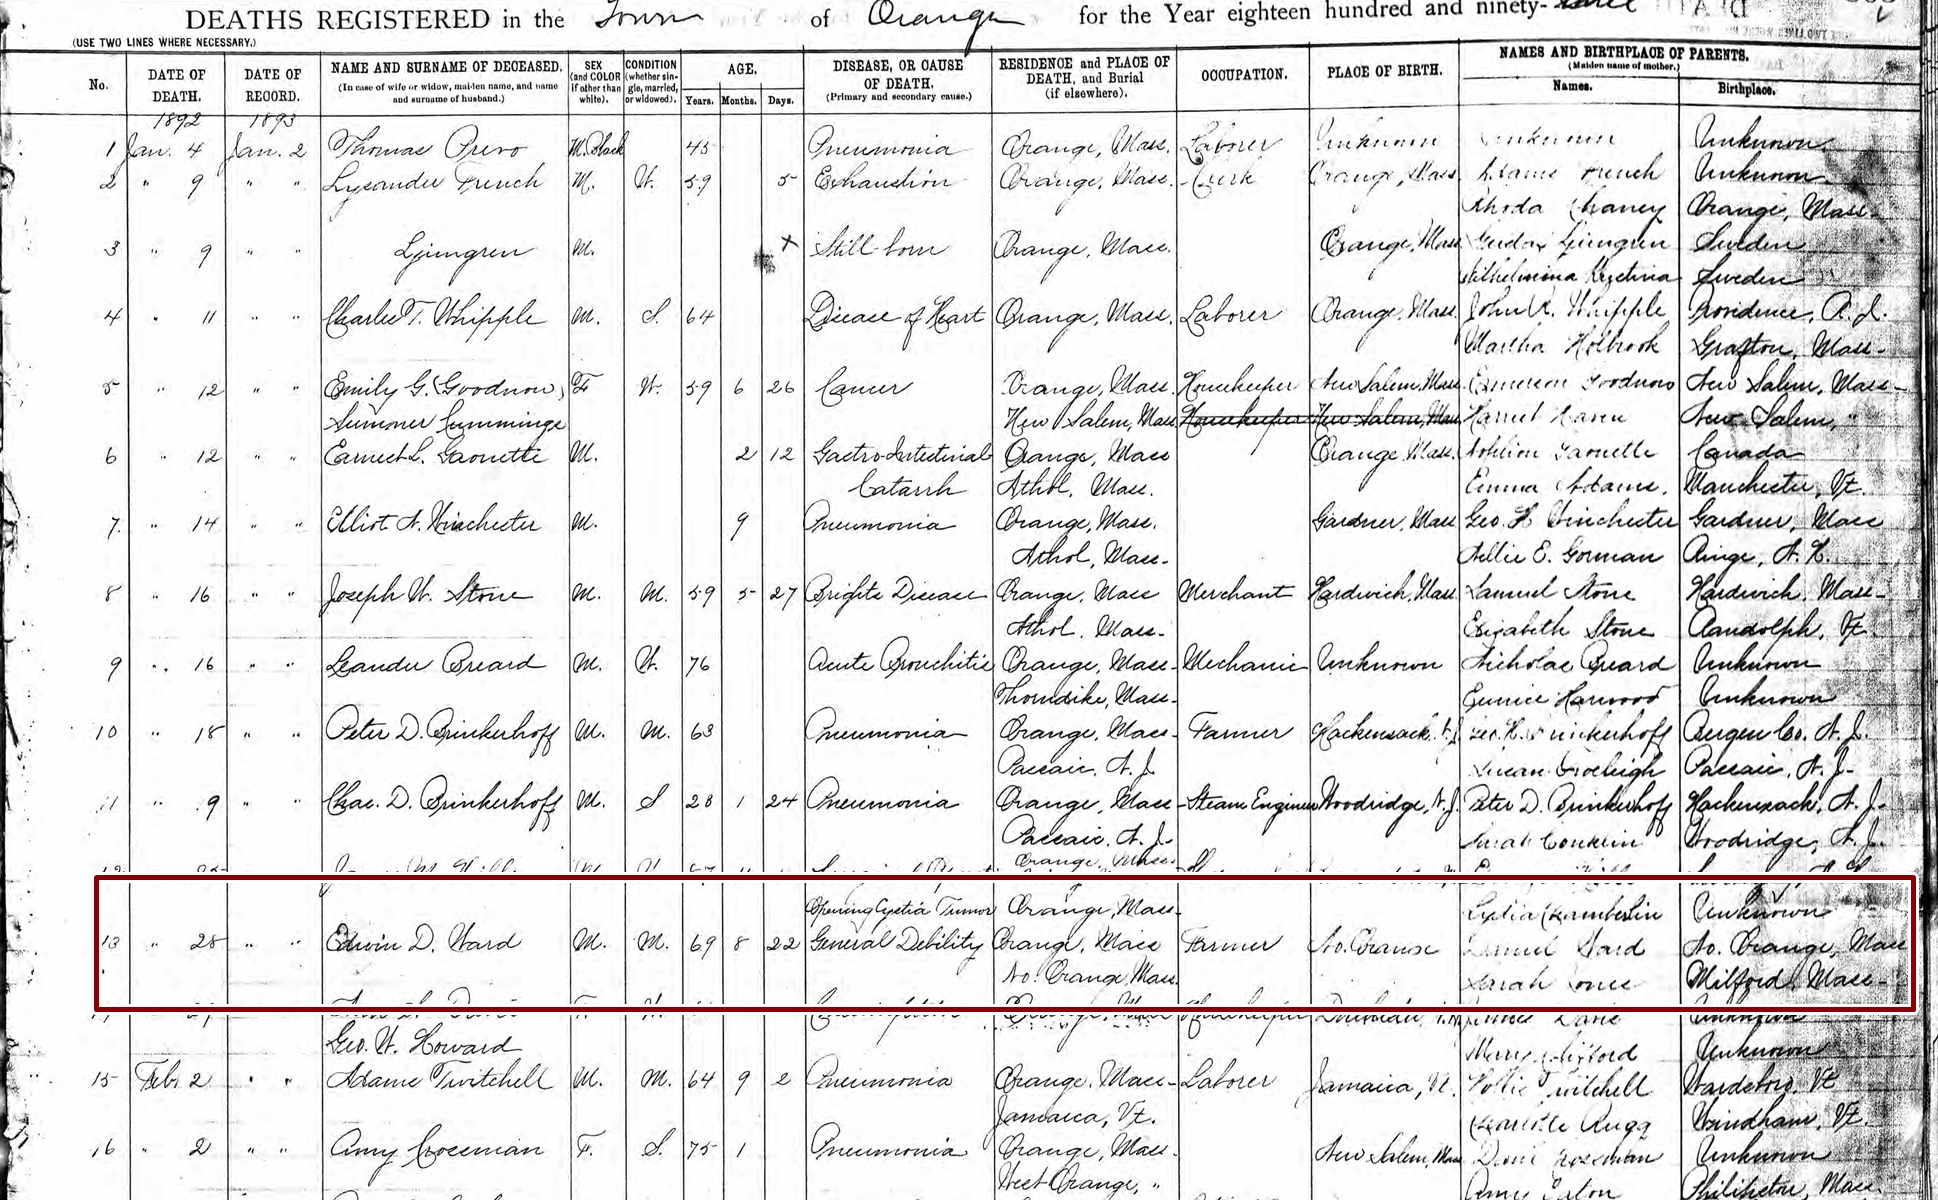 DEATHS REGISTERED in the Town of Orange for the Year eighteen hundred and ninety-
(USE TWO LINES WHERE NECESSARY.)
No. DATE OF DEATH. DATE OF RECORD. NAME AND SURNAME OF DECEASED. (In case of wife or widow, maiden name, and name and surname of husband.) SEX (and COLOR if other than white). CONDITION (whether single, married, or widowed). AGE. Years. Months. Days. DISEASE, OR CAUSE OF DEATH. (Primary and secondary cause.) RESIDENCE and PLACE OF DEATH, and Burial (if elsewhere). OCCUPATION. PLACE OF BIRTH. NAMES AND BIRTHPLACE OF PARENTS. (Maiden name of mother.) Names. Birthplace.
1892 1893
1 Jan. 4 Jan. 2 Thomas Prevo M. Black 45 Pneumonia Orange, Mass. Laborer Unknown Unknown Unknown
2 " 9 " " Lysander French M. W. 59 5 Exhaustion Orange, Mass. Clerk Orange, Mass. Adams French Unknown
Rhoda Chaney Orange, Mass.
3 " 9 " " Ljungren M. x Still-born Orange, Mass. Orange, Mass. Ljungren Sweden
Wilhelmina Sweden
4 " 11 Charles T. Whipple M. S. 64 Disease of Heart Orange, Mass. Laborer Orange, Mass. John R. Whipple Providence, R.I.
Martha Holbrook Grafton, Mass.
5 " 12 " " Emily G. (Goodnow) F W. 59 6 26 Cancer Orange, Mass. Housekeeper New Salem, Mass. Emerson Goodnow New Salem, Mass.
Sumner Cummings New Salem, Mass. Housekeeper New Salem, Mass. Harriet Haven New Salem, "
6 " 12 " " Earnest L. Gaouette M. 2 12 Gastro-Intestinal Orange, Mass Orange, Mass. Gaouette Canada
Catarrh Athol, Mass. Emma Adams. Manchester, Vt.
7. " 14 " " Elliot A. Winchester M. 9 Pneumonia Orange, Mass. Gardner, Mass Geo. H. Winchester Gardner, Mass
Athol, Mass. Nellie E. Gorman Ringe, N.H.
8 " 16 " " Joseph W. Stone M. M. 59 5 27 Brights Disease Orange, Mass Merchant Hardwich, Mass. Samuel Stone Hardwich, Mass.
Athol, Mass. Elizabeth Stone Randolph, Vt.
9 " 16 " " Leander Breard M. W. 76 Acute Bronchitis Orange, Mass. Mechanic Unknown Nicholas Breard Unknown
Thorndike, Mass. Eunice Harwood Unknown
10 " 18 " " Peter D. Brinkerhoff M. M. 63 Pneumonia Orange, Mass. Farmer Hackensack, N.J. Geo. H. Brinkerhoff Bergen Co. N.J.
Passaic, N.J. Passaic, N.J.
11 " 9 " " Chas. D. Brinkerhoff M. S 28 1 24 Pneumonia Orange, Mass. Steam Engineer Woodridge, N.J. Peter D. Brinkerhoff Hackensack, N.J.
Passaic, N.J. Sarah Conklin Woodridge, N.J.
Orange, Mass.
Opening Cystic Tumor Orange, Mass. Lydia Chamberlin Unknown
13 " 28 " " Edwin D. Ward M. M. 69 8 22 General Debility Orange, Mass Farmer No. Orange Daniel Ward No. Orange, Mass
No. Orange, Mass. Sarah Jones Milford, Mass.
Geo. W. Howard Mercy Clifford Unknown
15 Feb. 2 " " Adams Twitchell M. M. 64 9 2 Pneumonia Orange, Mass. Laborer Jamaica, Vt. Twitchell Wardsboro, Vt
Jamaica, Vt. Charlotte Rugg Windham, Vt.
16 " 2 " " Amy Crossman F. S. 75 1 Pneumonia Orange, Mass. New Salem, Mass Crossman Unknown
West Orange, " Amy Eaton Philipston, Mass.